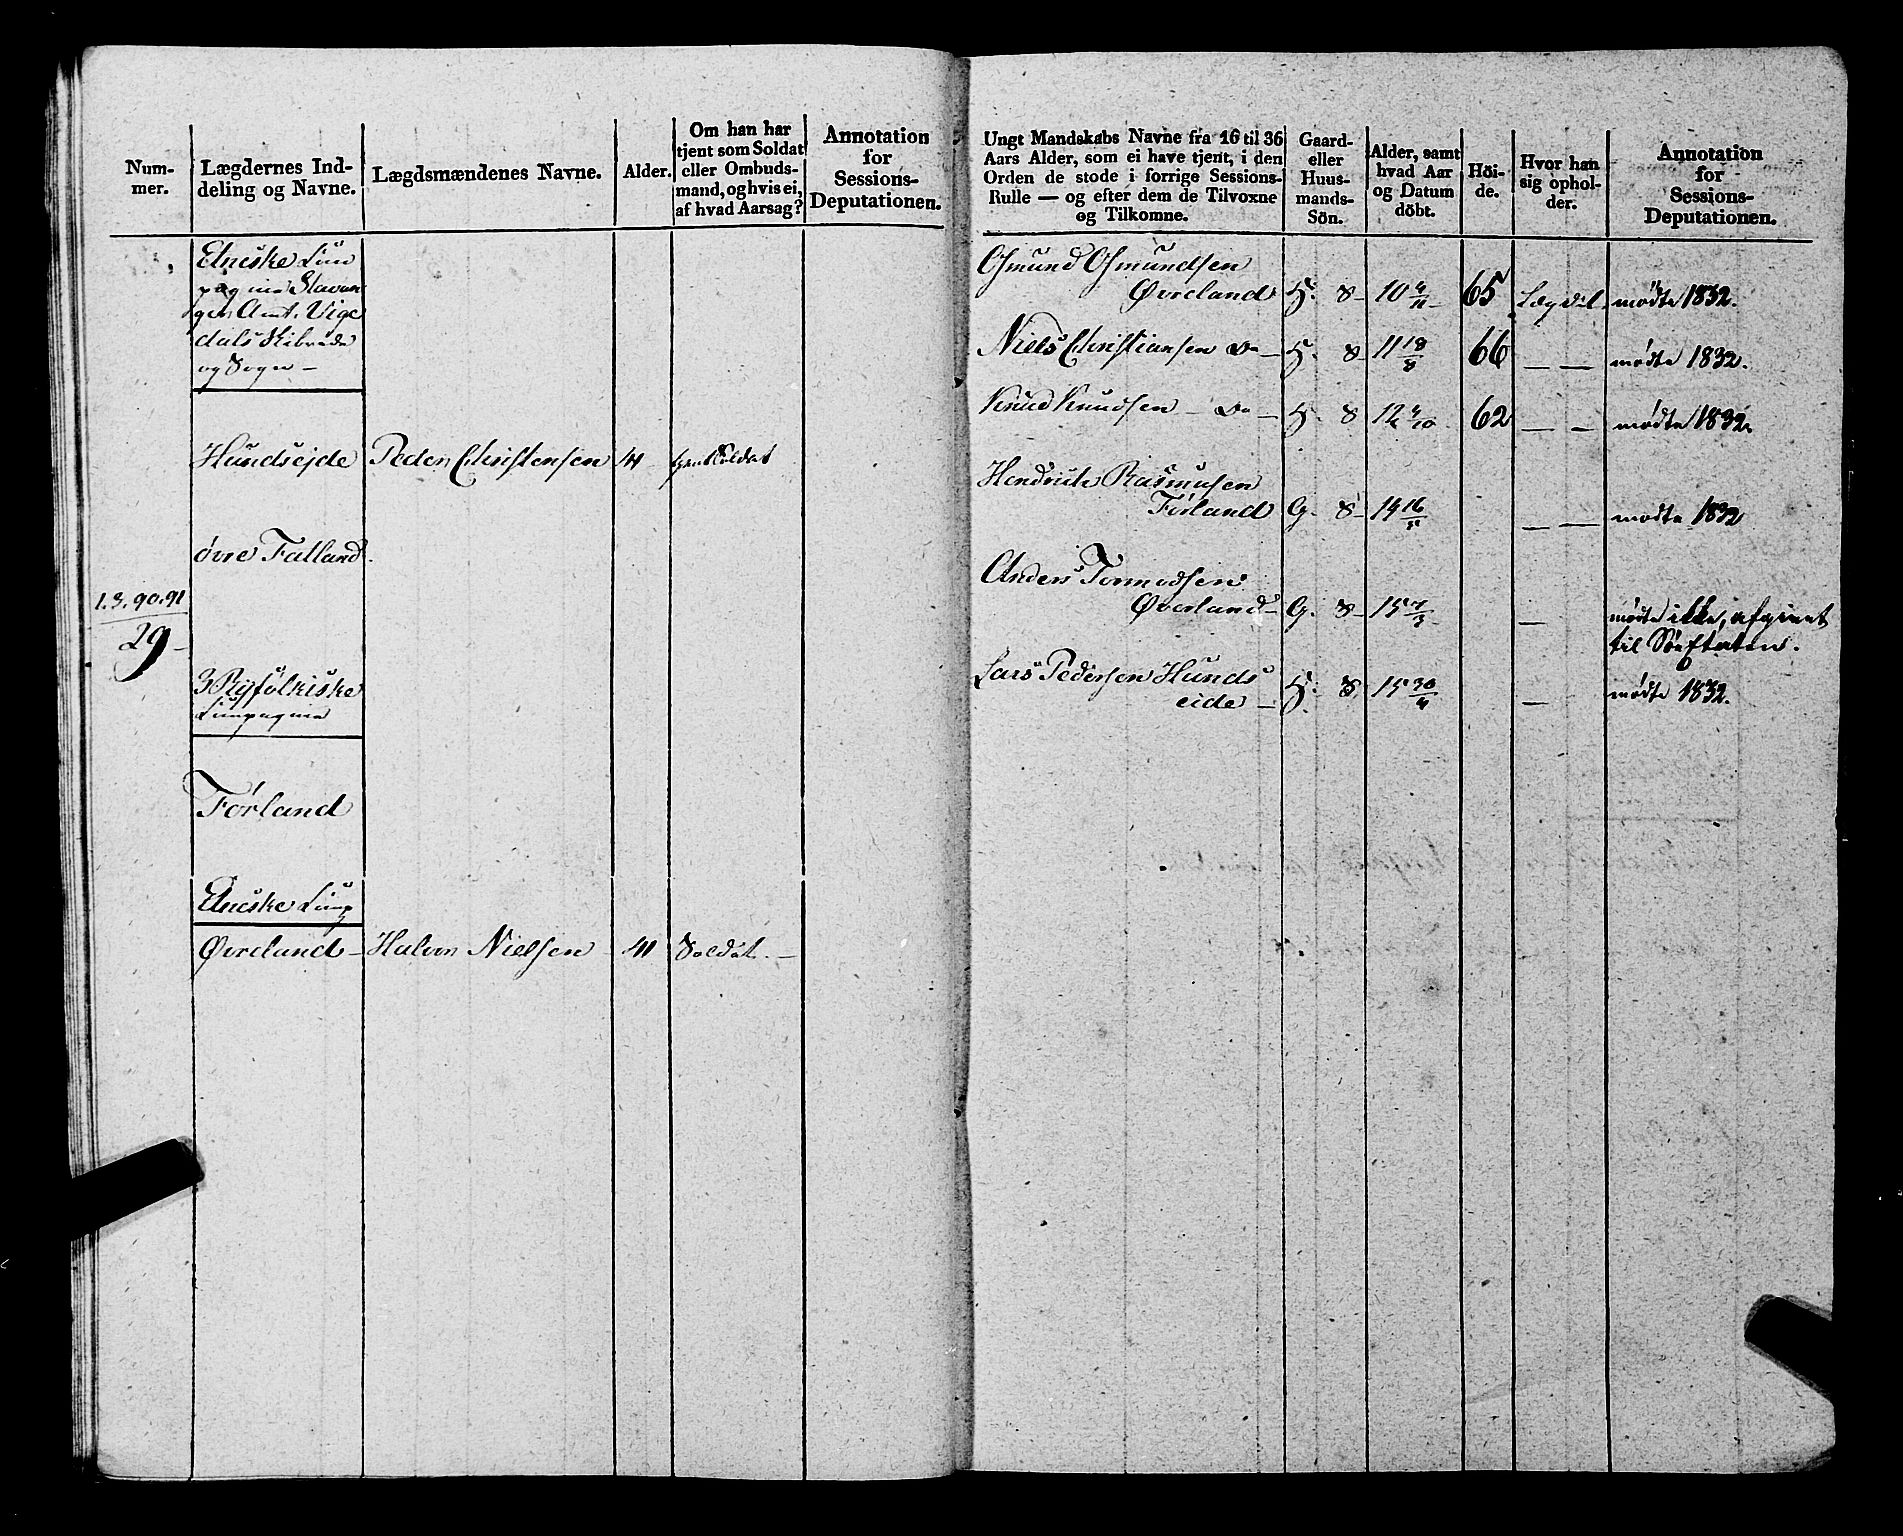 Num-
mer.
Lægdernes Ind-
deling og Navne.
Lægdsmændenes Navne.
Alder.
Om han har
tjent som Soldat
eller Ombuds-
mand, og hvis ei,
af hvad Aarsag?
Annotation
for
Sessions-
Deputationen.
Etneske Com
pagnie Stavan
ger Amt. Vige
dals Skibrede
og Sogn –
Hundseide Peder Christensen 44 tjent Soldat
øvre Falland
1.3.90.91
29
3 Ryfølkiske
Compagnie
Førland
Etneske Comp
Øvreland – Halvor Nielsen 41 Soldat. –
Ungt Mandskabs Navne fra 16 til 36
Aars Alder, som ei have tjent, i den
Orden de stode i forrige Sessions-
Rulle — og efter dem de Tilvoxne
og Tilkomne.
Gaard-
eller
Huus-
mands-
Sön.
Alder, samt
hvad Aar
og Datum
döbt.
Höi-
de.
Hvor han
sig ophol-
der.
Annotation
for
Sessions-
Deputationen.
Osmund Osmundsen
Øvreland H. S – 10 65 Lægdet mødte 1832.
Niels Christiansen Do – H. S – 11 18/8 66 — — mødte 1832.
Knud Knudsen – Do – H. S 12 62 — – mødte 1832.
Hendrich Rasmusen
Førland G. S – 14 — — mødte 1832
Anders Tormodsen
Øvreland – G. S – 15 7/3 — mødte ikke, afgivet
til Søe Etaten.
Lars Pedersen Hunds
eide – H. S 15 — mødte 1832.